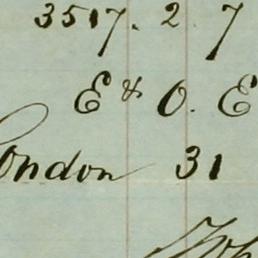 3517. 2. 7
E & O. E
London 31
Joh